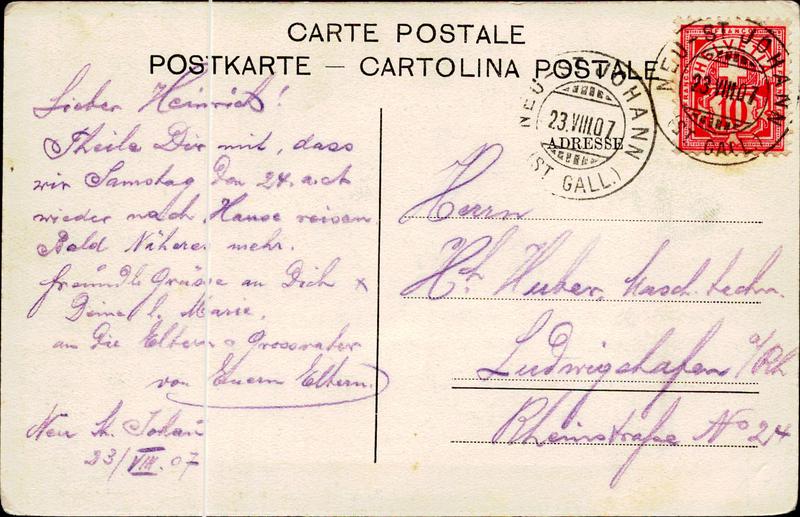 CARTE POSTALE
POSTKARTE — CARTOLINA POSTALE
Lieber Heinrich!
Theile Dir mit, dass
wir Samstag den 24. a.ct.
wieder nach Hause reisen.
Bald Näheres mehr.
freundl. Grüsse an Dich &
Deine l. Marie,
an die Eltern & Grossvater
von Euern Eltern.
Neu St. Johann
23/VIII.07
FRANCO
HELVETIA
10
NEU-ST. JOHANN
23.VIII.07
(ST. GALL.)
NEU-ST. JOHANN
23.VIII.07
(ST. GALL.)
ADRESSE
Herrn
Hch. Huber, Masch. techn.
Ludwigshafen a/Rh
Rheinstraße No 24